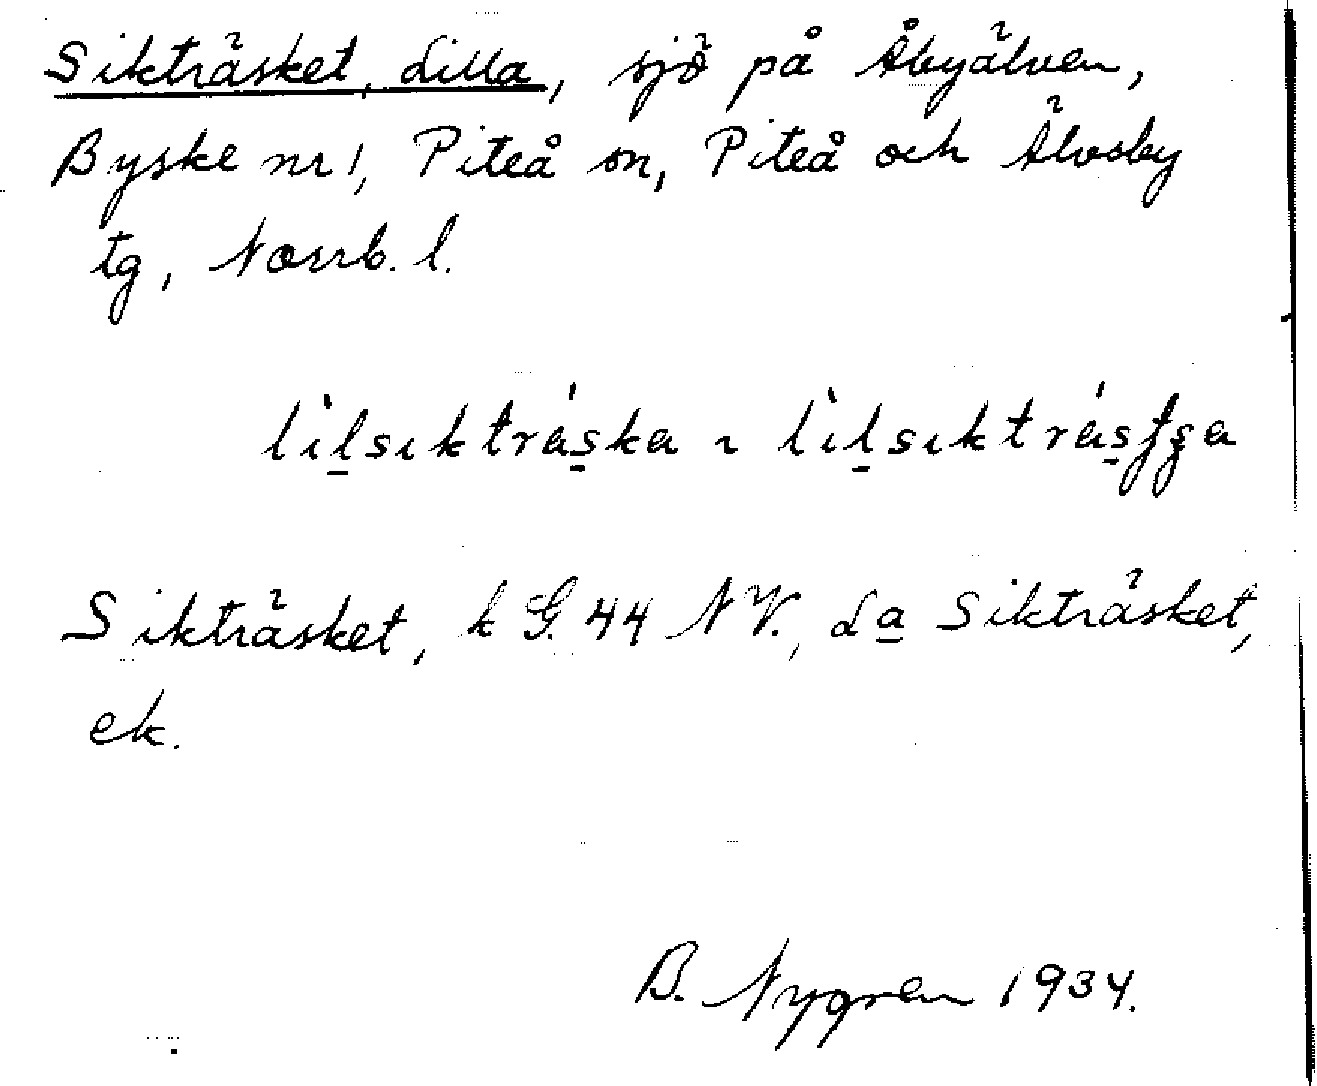 Sikträsket, Lilla, sjö på Åbyälven,
Byske nr 1, Piteå sn, Piteå och Älvsby
tg, Norrb. l.
Sikträsket, k G. 44 NV., La Sikträsket,
ek.
B. Nygren 1934.